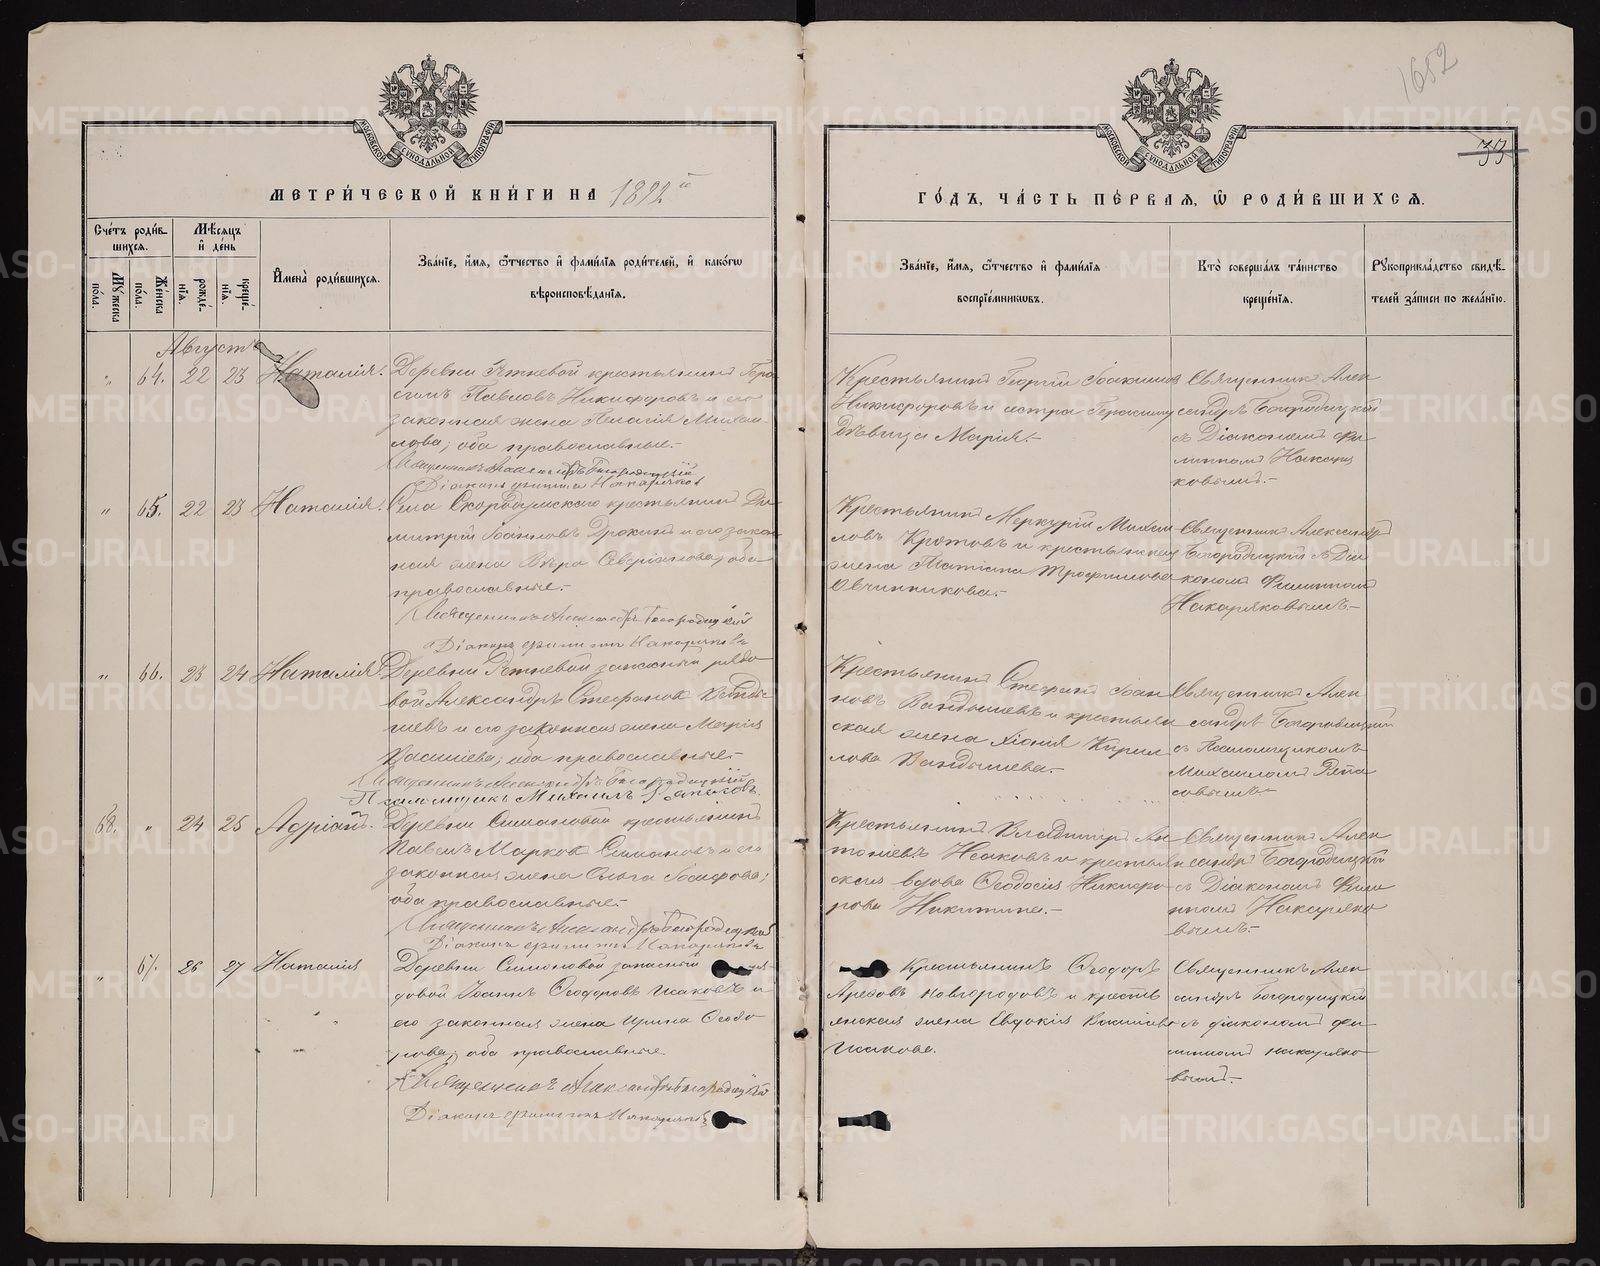 1652
33
МОСКОВСКОЙ СѴНОДАЛЬНОЙ ТИПОГРАФІИ
МОСКОВСКОЙ СѴНОДАЛЬНОЙ ТИПОГРАФІИ
МЕТРИ́ЧЕСКОЙ КНИ́ГИ НА 1892й
ГО́ДЪ, ЧА́СТЬ ПЕ́РВАЯ, Ѡ РОДИ́ВШИХСЯ.
Сче́тъ роди́в-
шихся.
Му́жеска
по́ла.
Же́нска
по́ла.
Мѣ́сяцъ
и҆ де́нь
рожде́-
нїя.
креще́-
нїя.
И҆мена̀ роди́вшихся.
Зва́нїе, и҆́мя, ѻ҆́тчество и҆ фами́лїя роди́телей, и҆ како́гѡ
вѣроисповѣ́данїя.
Зва́нїе, и҆́мя, ѻ҆́тчество и҆ фами́лїя
воспрїе́мникѡвъ.
Кто̀ соверша́лъ та́инство
креще́нїя.
Рꙋкоприкла́дство свидѣ́-
телей за́писи по жела́нїю.
Августъ
„ 64. 22 23 Наталія.
Деревни крестьянинъ Гера
симъ Павловъ Никифоровъ и его
законная жена Пелагія Михаи
лова, оба православные.-
Священникъ Александръ Богородицкій
Діаконъ Филиппъ Накаряковъ
Крестьянинъ Георгій Іоакимовъ
Никифоровъ и сестра Герасиму
дѣвица Марія.-
Священникъ Алек
сандръ Богородицкій
съ Діакономъ Фи
липпомъ Накаря
ковымъ.-
„ 65. 22 23 Наталія.
Села Скородумскаго крестьянинъ Ди
митрій Іоанновъ и его закон
ная жена Вѣра Северіанова, оба
православные.-
Священникъ Александръ Богородицкій
Діаконъ Филиппъ Накаряковъ
Крестьянинъ Меркурій Михаи
ловъ Кротовъ и крестьянская
жена Татіана Трофимова
Овчинникова.-
Священникъ Александръ
Богородицкій съ Діа
кономъ Филиппомъ
Накаряковымъ.-
„ 66. 23 24 Наталія
Деревни запасный рядо
вой Александръ Стефановъ Ванды
шевъ и его законная жена Марія
Васильева, оба православные.-
Священникъ Александръ Богородицкій
Псаломщикъ Михаилъ
Крестьянинъ Стефанъ Іоан
новъ Вандышевъ и крестьян
ская жена Хіонія Кирил
лова Вандышева.-
Священникъ Алек
сандръ Богородицкій
съ Псаломщикомъ
Михаиломъ
68. „ 24 25 Адріанъ.
Деревни Симановой крестьянинъ
Павелъ Марковъ Симановъ и его
законная жена Ольга Іосифова,
оба православные.-
Священникъ Александръ Богородицкій
Діаконъ Филиппъ Накаряковъ
Крестьянинъ Владиміръ Ан
тоніевъ Исаковъ и крестьян
ская вдова Ѳеодосія Никифо
рова Никитина.-
Священникъ Алек
сандръ Богородицкій
съ Діакономъ Фили
ппомъ Накаряко
вымъ.-
„ 67. 26 27 Наталія
Деревни Симоновой запасный
довой Іоаннъ Ѳеодоровъ Исаковъ и
его законная жена Ирина Ѳеодо
рова, оба православные.
Священникъ Александръ Богородицкій
Діаконъ Филиппъ Накаряковъ
Крестьянинъ Ѳеодоръ
Новгородовъ и кресть
янская жена Евдокія Васильева
Исакова.
Священникъ Алек
сандръ Богородицкій
съ діакономъ Фи
липпомъ Накаряко
вымъ.-